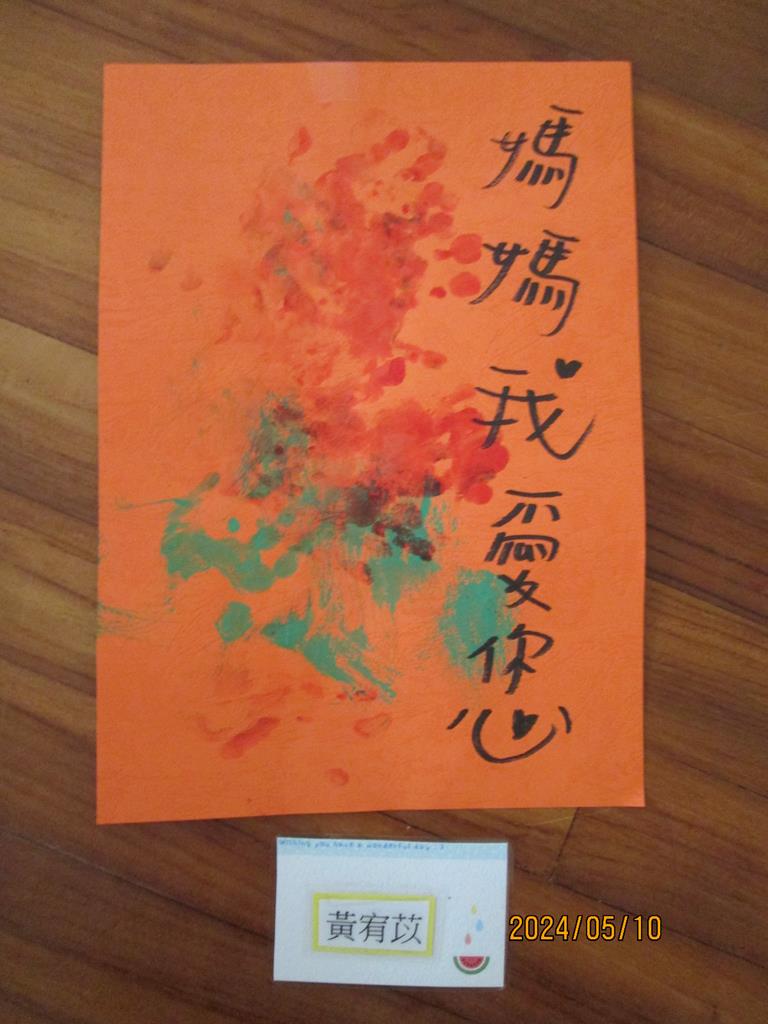 媽媽我愛您
Wishing you have a wonderful day :)
黃宥苡
2024/05/10